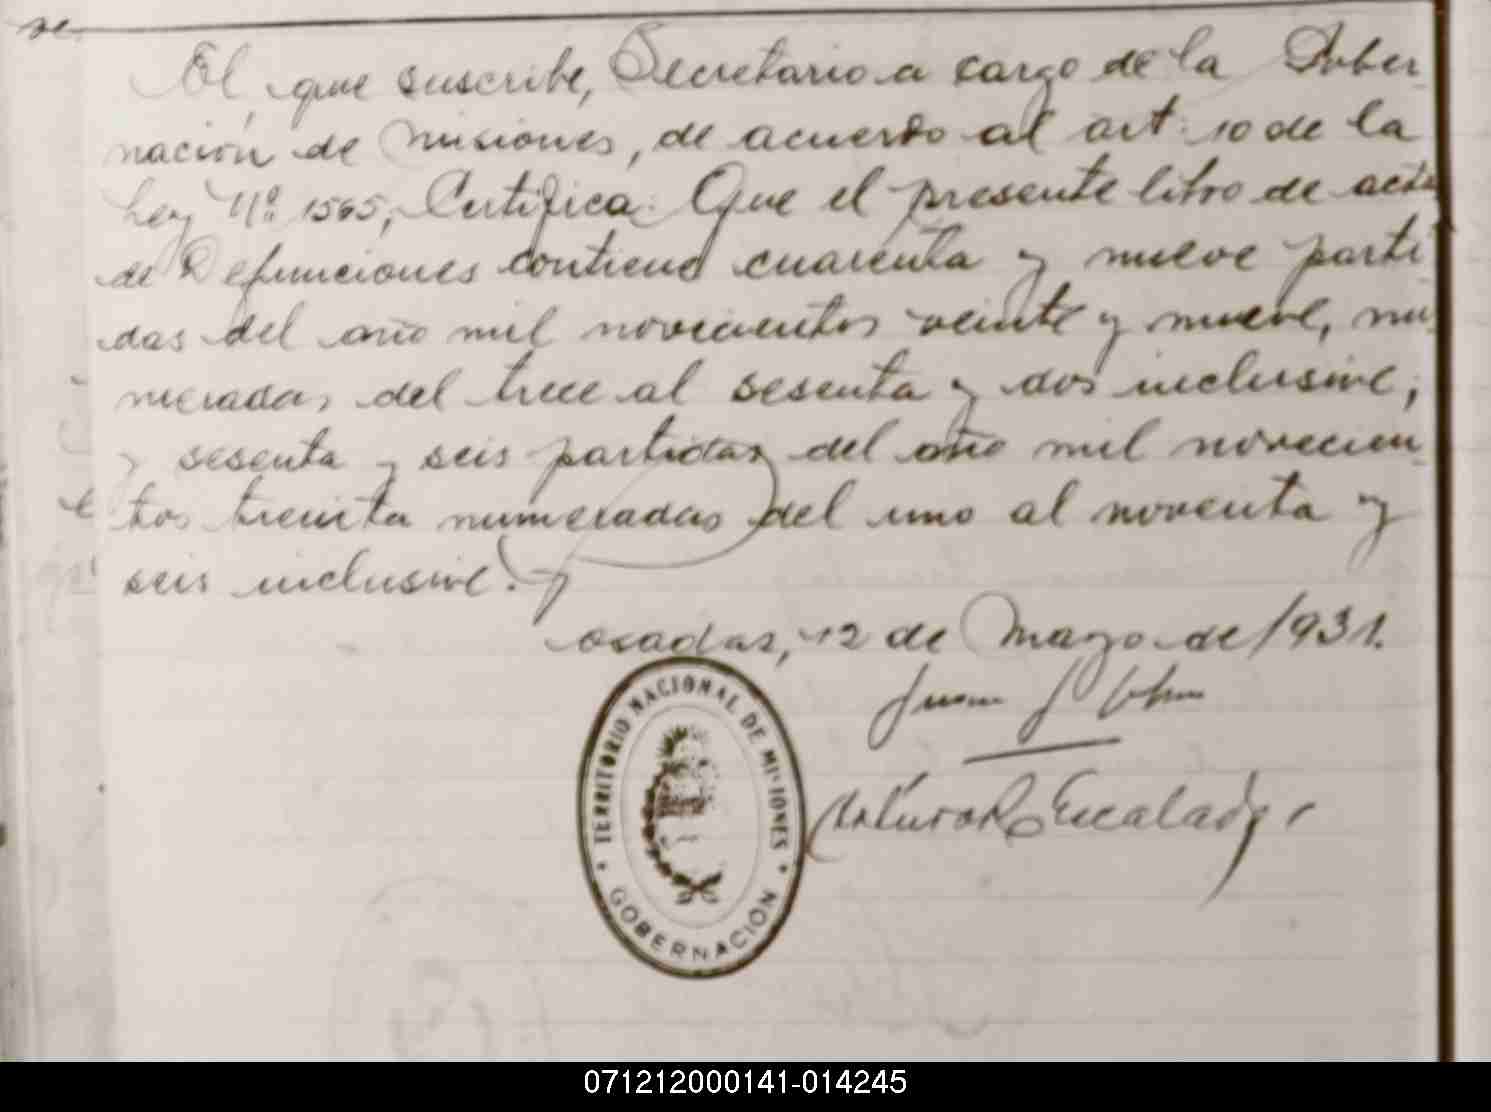 El que suscribe, Secretario a cargo de la Gober-
nación de Misiones, de acuerdo al art. 10 de la
Ley Nº 1565, Certifica: Que el presente libro de acta
de Defunciones contiene cuarenta y nueve parti
das del año mil novecientos veinte y nueve, nu
meradas del trece al sesenta y dos inclusive,
y sesenta y seis partidas del año mil novecien
tos treinta numeradas del uno al noventa y
seis inclusive.
Posadas, 12 de Mayo de 1931.
Juan
Arturo R Escalada
TERRITORIO NACIONAL DE MISIONES
GOBERNACION
071212000141-014245